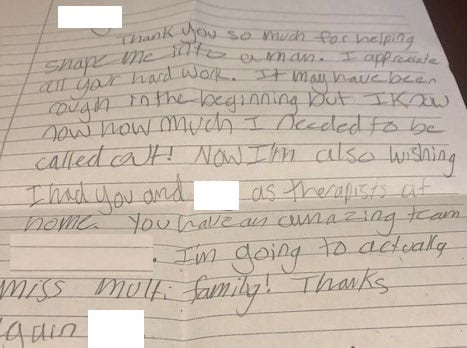 Thank you so much for helping
shape me into a man. I appreciate
all your hard work. It may have been
rough in the beginning but I know
now how much I needed to be
called out! Now I'm also wishing
I had you and as therapists at
home. You have an amazing team
. I'm going to actually
miss multi family! Thanks
again